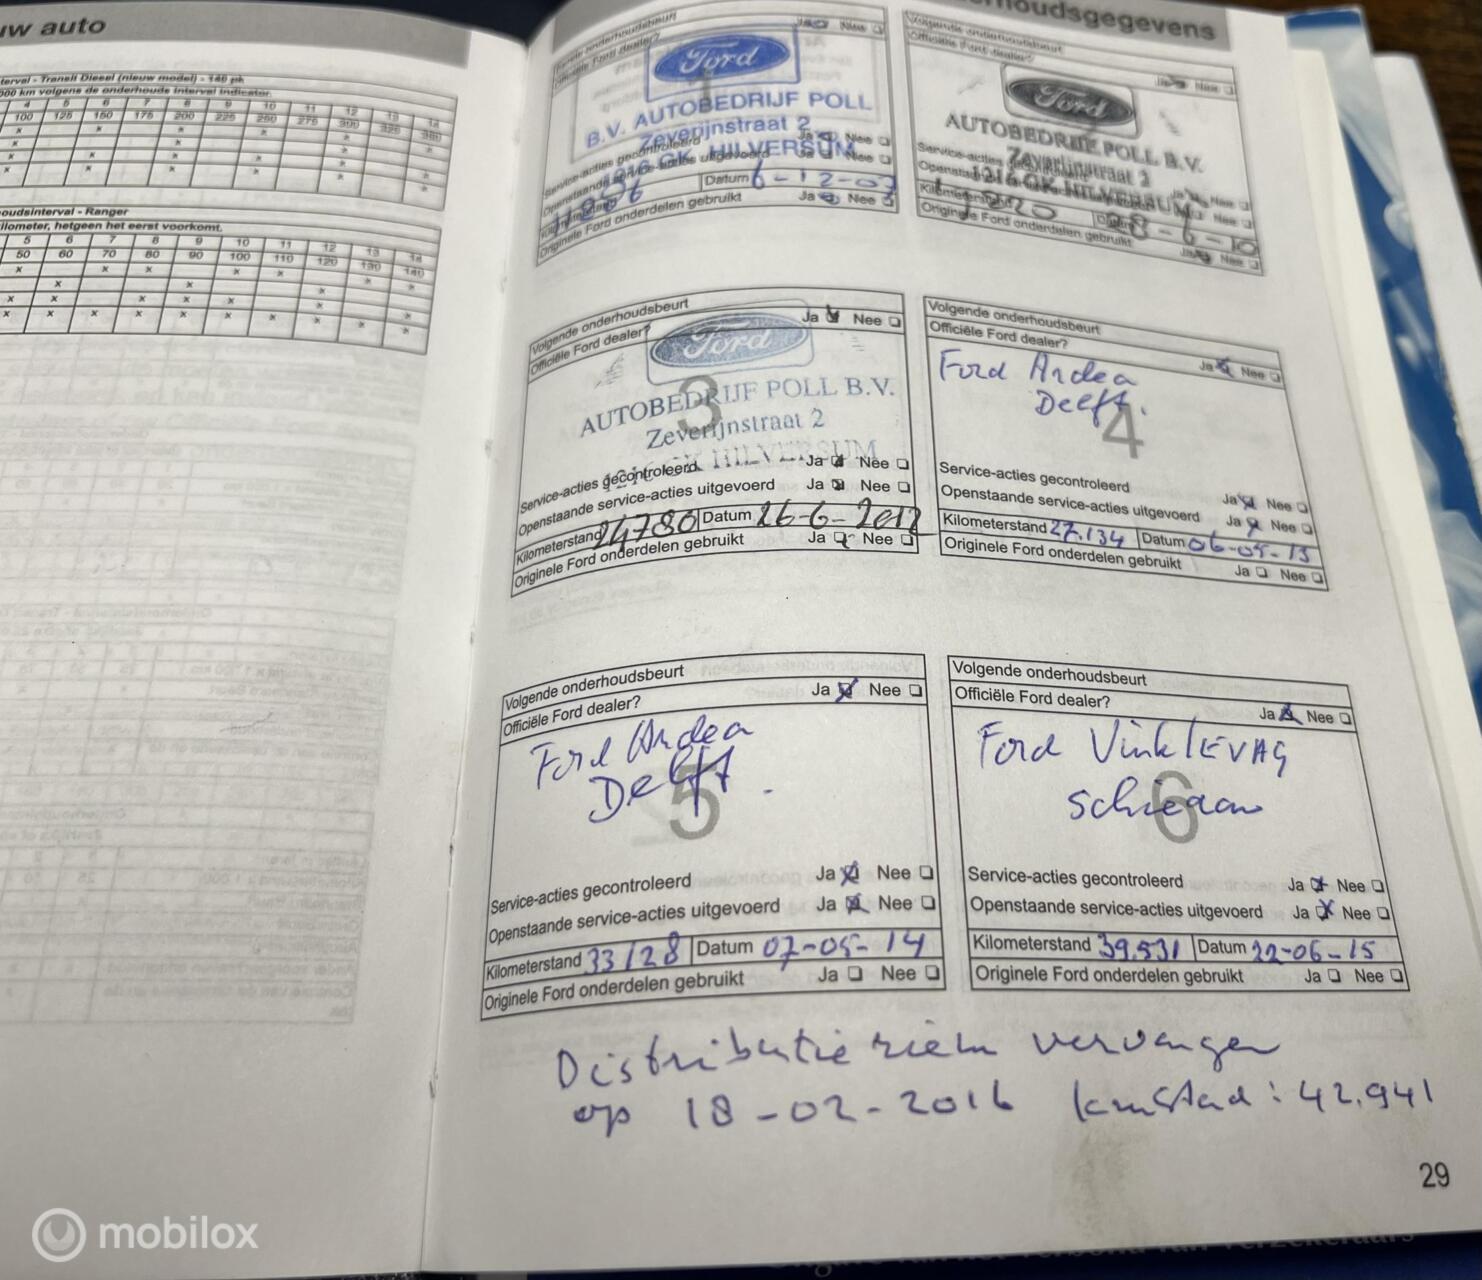 uw auto
terval - Transit Diesel (nieuw model) - 140 pk
000 km volgens de onderhouds interval indicator.
4 5 6 7 8 9 10 11 12 13 14
100 125 150 175 200 225 250 275 300 325 350
oudsinterval - Ranger
ilometer, hetgeen het eerst voorkomt.
5 6 7 8 9 10 11 12 13 14
50 60 70 80 90 100 110 120 130 140
rhoudsgegevens
Eerste onderhoudsbeurt
Officiële Ford dealer? Ja Nee
Ford
1
B.V. AUTOBEDRIJF POLL
Zeverijnstraat 2
1216 GK HILVERSUM
Service-acties gecontroleerd Ja Nee
Openstaande service-acties uitgevoerd Ja Nee
Kilometerstand Datum 6-12-07
Originele Ford onderdelen gebruikt Ja Nee
Volgende onderhoudsbeurt
Officiële Ford dealer? Ja Nee
Ford
2
AUTOBEDRIJF POLL B.V.
Zeverijnstraat 2
1216 GK HILVERSUM
Service-acties gecontroleerd Ja Nee
Openstaande service-acties Ja Nee
Kilometerstand Datum 28-6-10
Originele Ford onderdelen gebruikt Ja Nee
Volgende onderhoudsbeurt
Officiële Ford dealer? Ja Nee
Ford
3
AUTOBEDRIJF POLL B.V.
Zeverijnstraat 2
HILVERSUM
Service-acties gecontroleerd Ja Nee
Openstaande service-acties uitgevoerd Ja Nee
Kilometerstand 24780 Datum 26-6-2012
Originele Ford onderdelen gebruikt Ja Nee
Volgende onderhoudsbeurt
Officiële Ford dealer? Ja Nee
Ford Ardea
Delft.
4
Service-acties gecontroleerd Ja Nee
Openstaande service-acties uitgevoerd Ja Nee
Kilometerstand 27.134 Datum 06-05-13
Originele Ford onderdelen gebruikt Ja Nee
Volgende onderhoudsbeurt
Officiële Ford dealer? Ja Nee
Ford Ardea
Delft.
5
Service-acties gecontroleerd Ja Nee
Openstaande service-acties uitgevoerd Ja Nee
Kilometerstand 33128 Datum 07-05-14
Originele Ford onderdelen gebruikt Ja Nee
Volgende onderhoudsbeurt
Officiële Ford dealer? Ja Nee
Ford
Schiedam
6
Service-acties gecontroleerd Ja Nee
Openstaande service-acties uitgevoerd Ja Nee
Kilometerstand 39.531 Datum 22-06-15
Originele Ford onderdelen gebruikt Ja Nee
Distributie riem vervangen
op 18-02-2016 kmstad: 42.941
29
mobilox